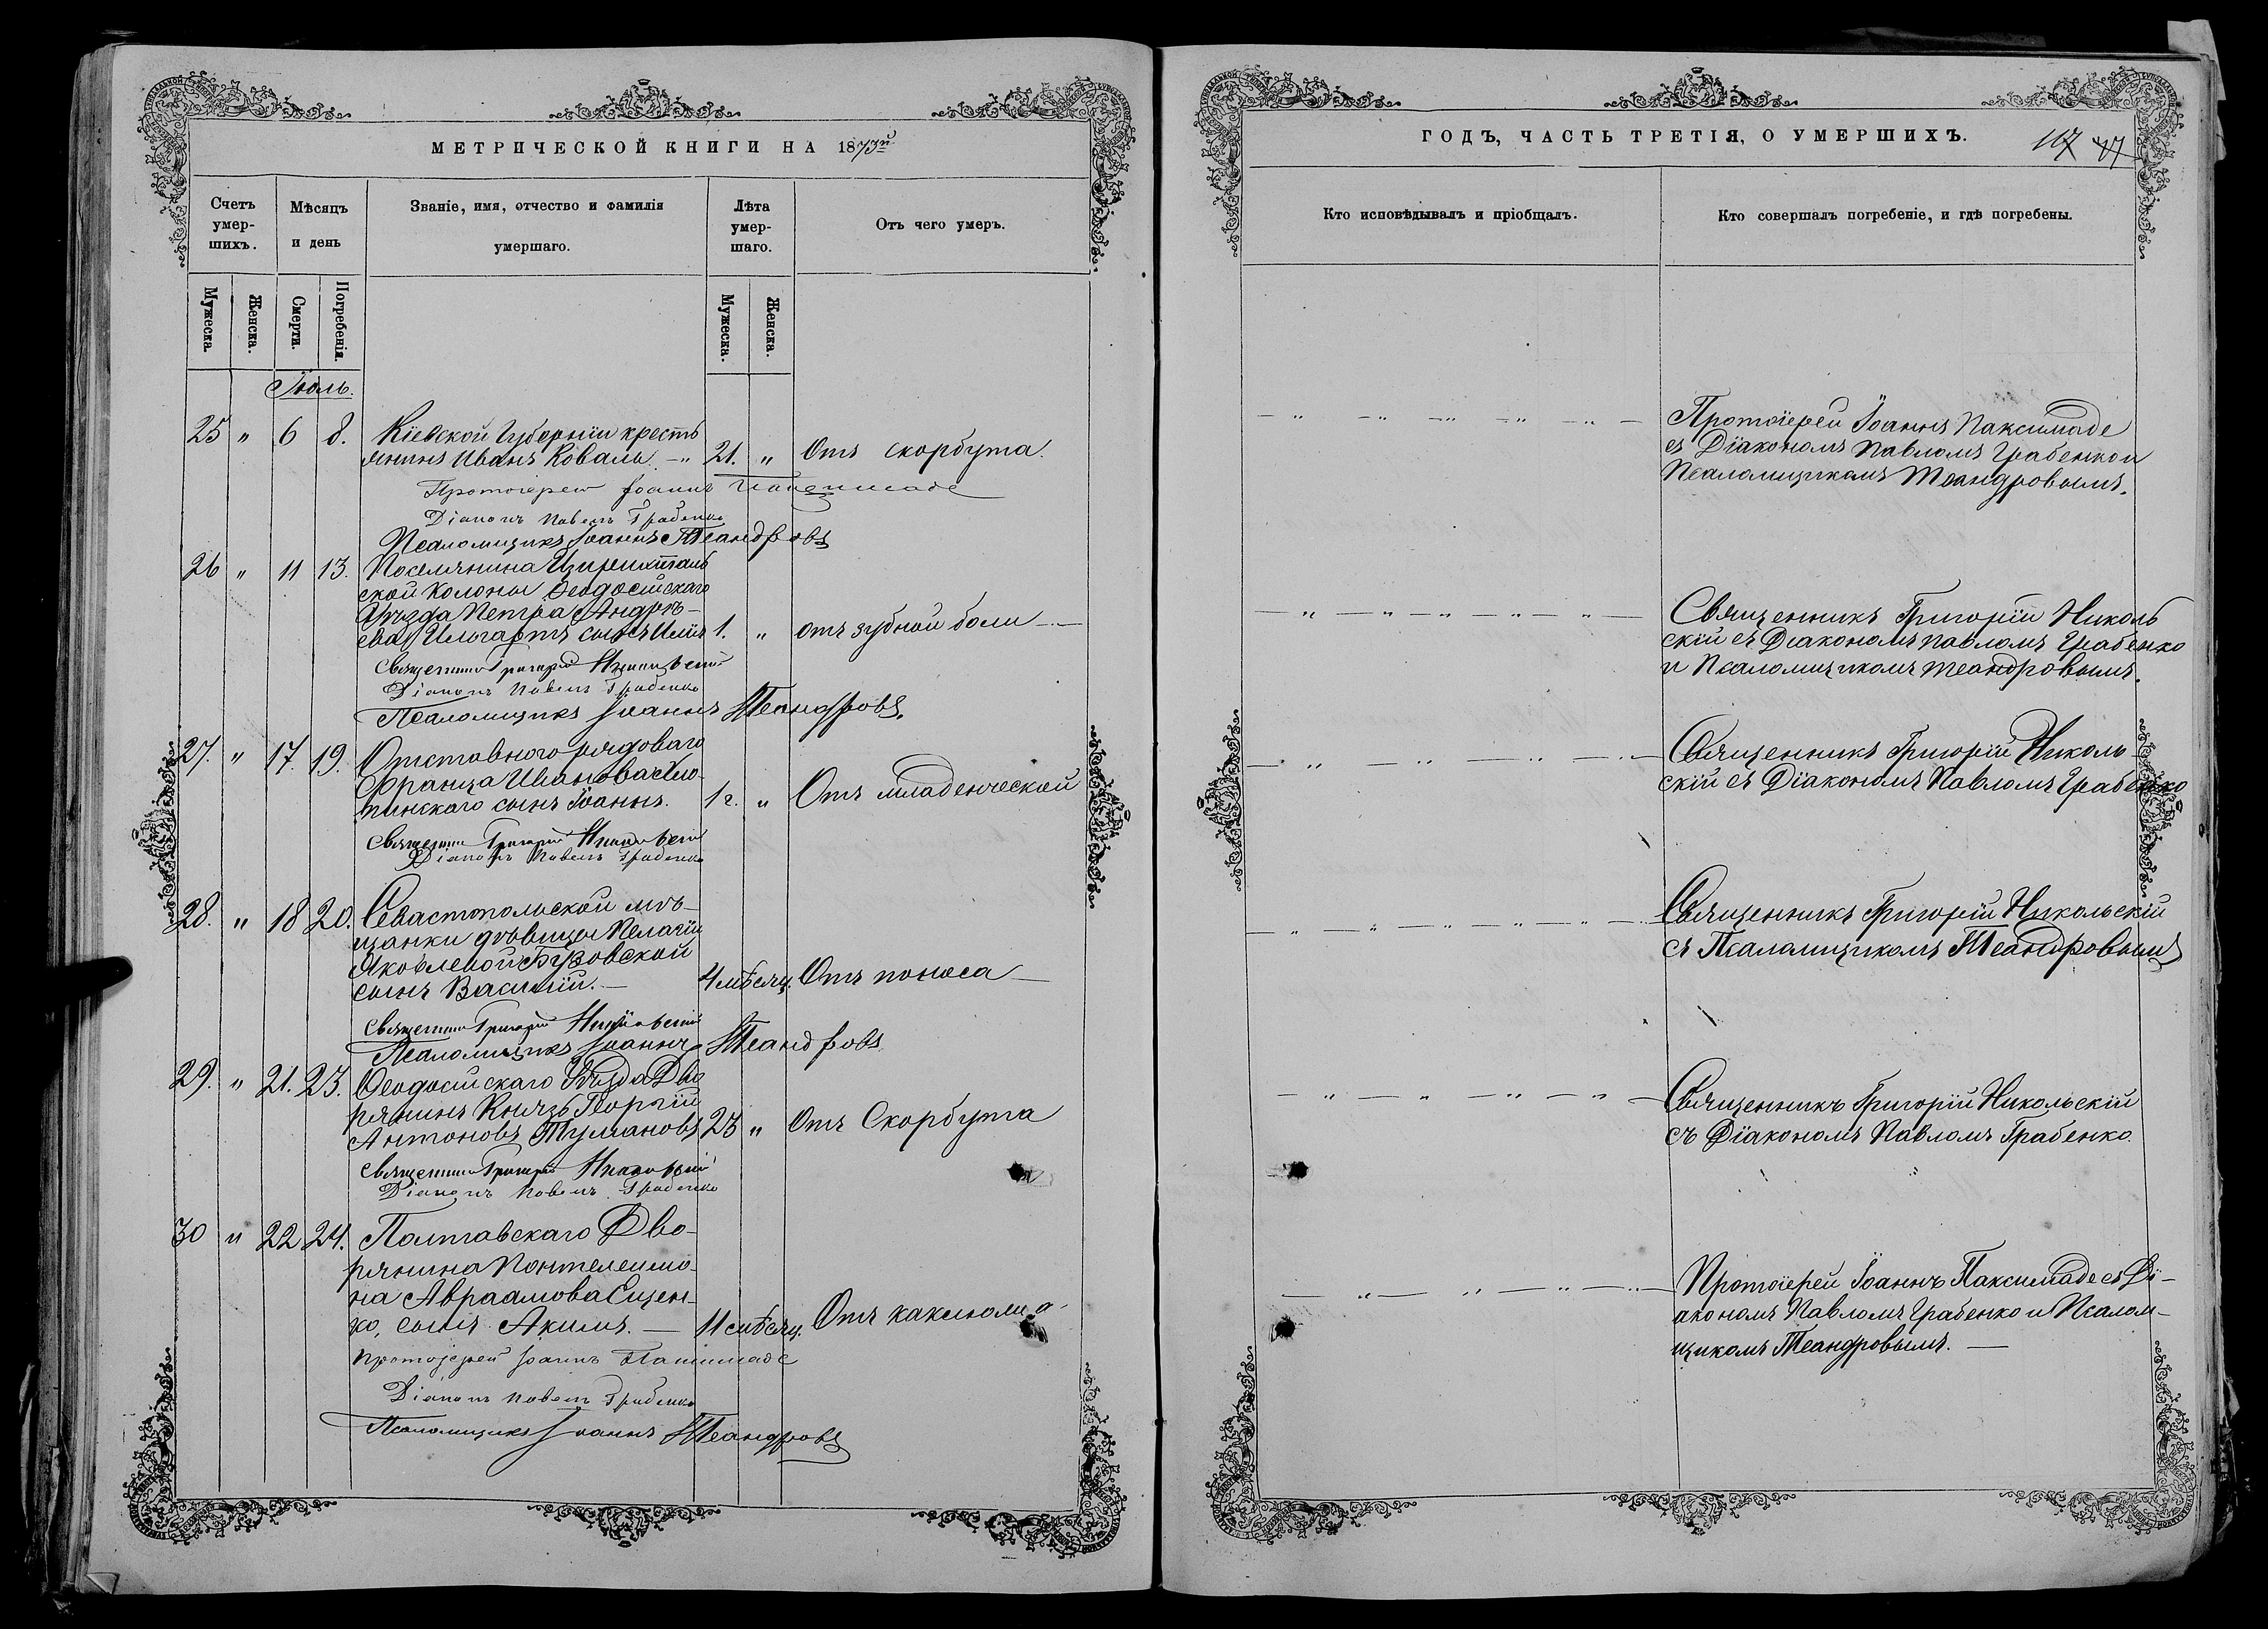 МЕТРИЧЕСКОЙ КНИГИ НА 1873й
Счетъ умер-шихъ.
Мѣсяцъ и день
Званіе, имя, отчество и фамилія умершаго.
Лѣта умер-шаго.
Отъ чего умеръ.
Мужеска. Женска. Смерти. Погребенія. Мужеска. Женска.
Іюль.
25 " 6 8. Кіевской Губерніи кресть
янинъ Иванъ Коваль. — " 21. " Отъ скорбута.
Протоіерей Іоаннъ
Діаконъ Павелъ Грабенко
Псаломщикъ Іоаннъ Теандровъ
26 " 11 13. Поселянина
ской Колоны Ѳеодосійскаго
Уѣзда Петра Андрѣ-
ева сынъ Илія 1. " отъ зубной боли —
Священникъ Григорій Никольскій
Діаконъ Павелъ Грабенко
Псаломщикъ Іоаннъ Теандровъ.
27. " 17. 19. Отставного рядоваго
Франца Иванова
пинскаго сынъ Іоаннъ. 1 г. " Отъ младенческой
Священникъ Григорій Никольскій
Діаконъ Павелъ Грабенко
28. " 18 20. Севастопольской мѣ-
щанки дѣвицы Пелагіи
Яковлевой Бузовской
сынъ Василій. — 4 мѣсяц. Отъ поноса —
Священникъ Григорій Никольскій
Псаломщикъ Іоаннъ Теандровъ
29. " 21. 23. Ѳеодосійскаго Уѣзда Дво
рянинъ Князь Георгій
Антоновъ Тумановъ 23 " Отъ Скорбута
Священникъ Григорій Никольскій
Діаконъ Павелъ Грабенко
30 " 22 24. Полтавскаго Дво-
рянина Понтелеимо-
на Авраамова Ещен-
ко, сынъ Акимъ. — 11 мѣсяц. Отъ
Протоіерей Іоаннъ Паксимаде
Діаконъ Павелъ Грабенко
Псаломщикъ Іоаннъ Теандровъ
ГОДЪ, ЧАСТЬ ТРЕТІЯ, О УМЕРШИХЪ.
Кто исповѣдывалъ и пріобщалъ.
Кто совершалъ погребеніе, и гдѣ погребены.
Протоіерей Іоаннъ Паксимаде
съ Діакономъ Павломъ Грабенко и
Псаломщикомъ Теандровымъ.
Священникъ Григорій Николь
скій съ Діакономъ Павломъ Грабенко
и Псаломщикомъ Теандровымъ.
Священникъ Григорій Николь
скій съ Діакономъ Павломъ Грабенко
Священникъ Григорій Никольскій
съ Псаломщикомъ Теандровымъ
Священникъ Григорій Никольскій
съ Діакономъ Павломъ Грабенко.
Протоіерей Іоаннъ Паксимаде съ Ді-
акономъ Павломъ Грабенко и Псалом-
щикомъ Теандровымъ. —